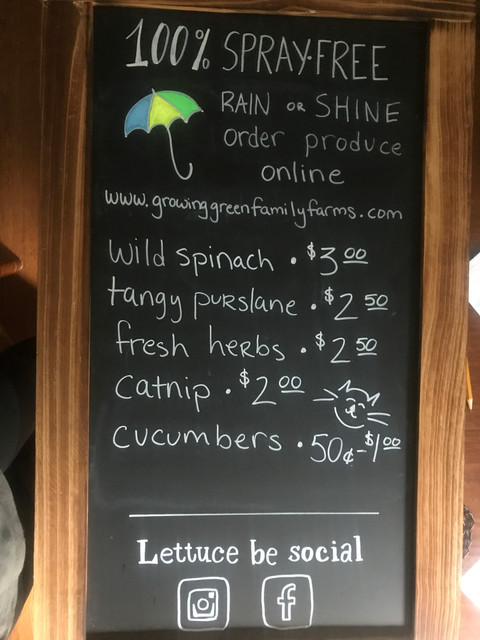 100% SPRAY-FREE
RAIN OR SHINE
order produce
online
www.growinggreenfamilyfarms.com
wild spinach • $3.00
tangy purslane • $2.50
fresh herbs • $2.50
catnip • $2.00
cucumbers • 50¢-$1.00
Lettuce be social